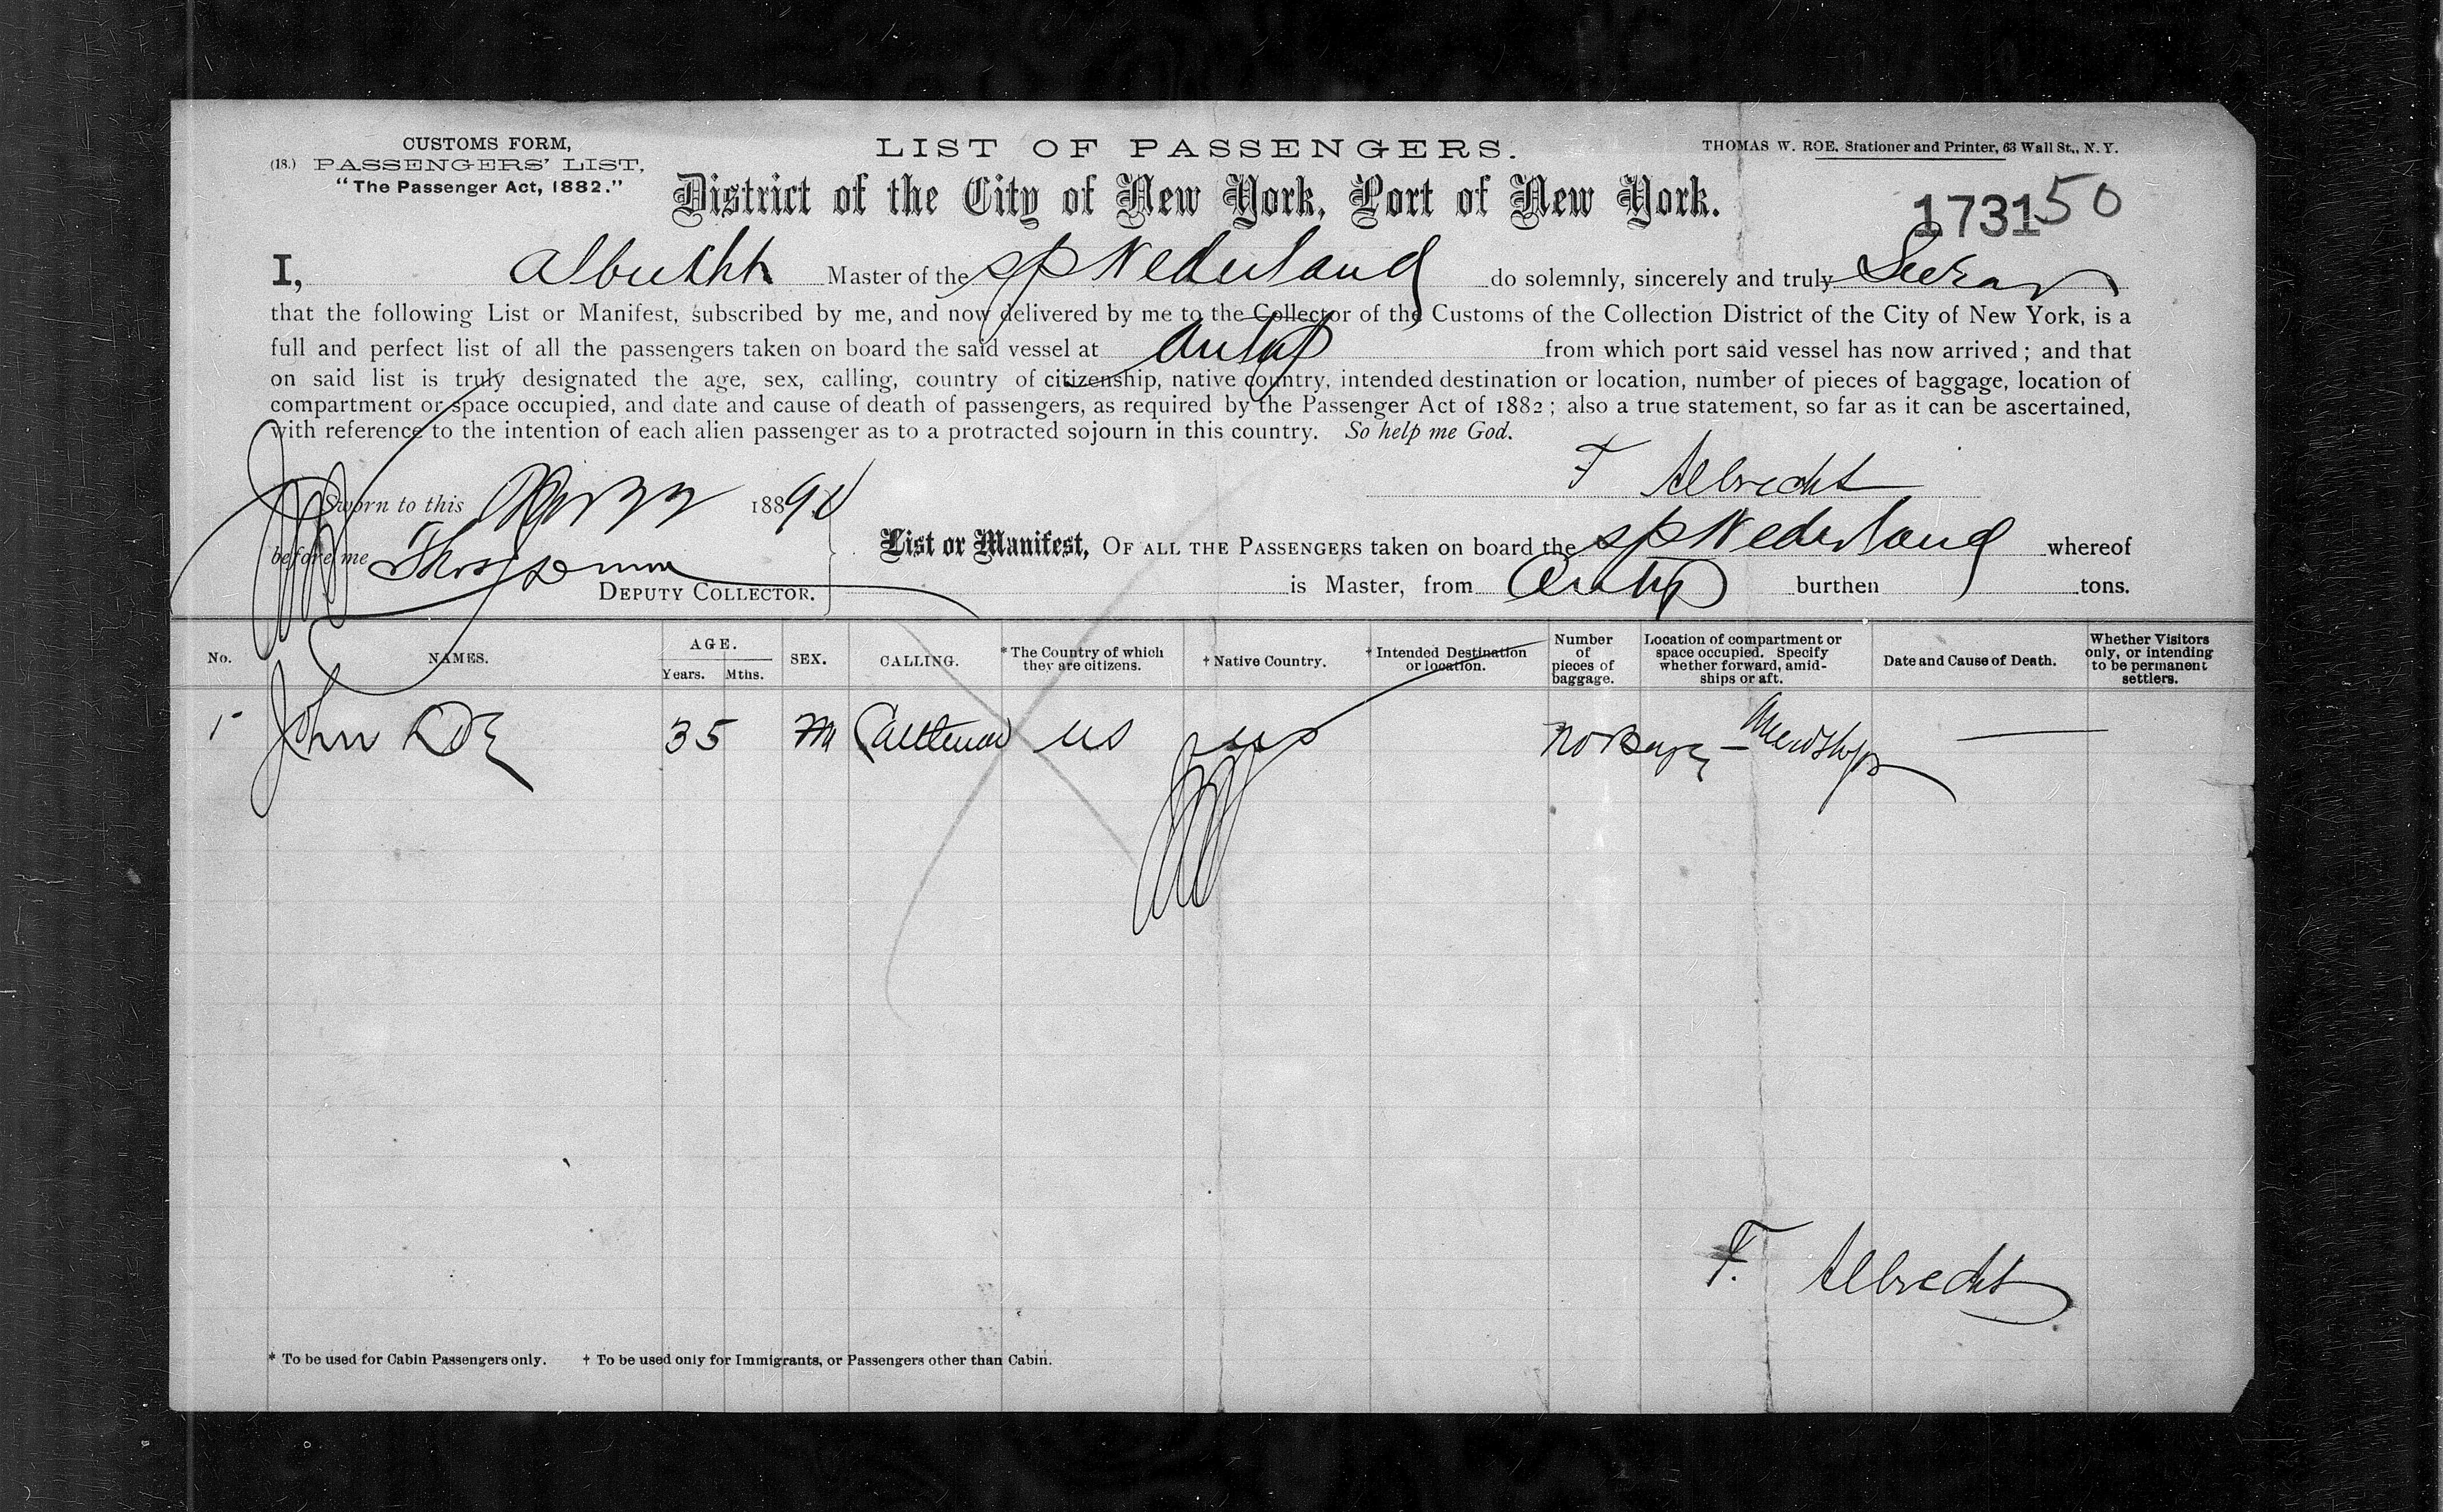 CUSTOMS FORM,
(18.) PASSENGERS' LIST,
"The Passenger Act, 1882."
LIST OF PASSENGERS.
THOMAS W. ROE, Stationer and Printer, 63 Wall St., N. Y.
District of the City of New York, Port of New York.
173150
I, Master of the Nederland do solemnly, sincerely and truly
that the following List or Manifest, subscribed by me, and now delivered by me to the Collector of the Customs of the Collection District of the City of New York, is a
full and perfect list of all the passengers taken on board the said vessel at from which port said vessel has now arrived; and that
on said list is truly designated the age, sex, calling, country of citizenship, native country, intended destination or location, number of pieces of baggage, location of
compartment or space occupied, and date and cause of death of passengers, as required by the Passenger Act of 1882; also a true statement, so far as it can be ascertained,
with reference to the intention of each alien passenger as to a protracted sojourn in this country. So help me God.
F Albrecht
Sworn to this 188
before me
DEPUTY COLLECTOR.
List or Manifest, OF ALL THE PASSENGERS taken on board the Nederland whereof
is Master, from burthen tons.
No. NAMES. AGE. Years. Mths. SEX. CALLING. * The Country of which they are citizens. † Native Country. † Intended Destination or location. Number of pieces of baggage. Location of compartment or space occupied. Specify whether forward, amidships or aft. Date and Cause of Death. Whether Visitors only, or intending to be permanent settlers.
1 John Doe 35 M us us No
F. Albrecht
* To be used for Cabin Passengers only. † To be used only for Immigrants, or Passengers other than Cabin.